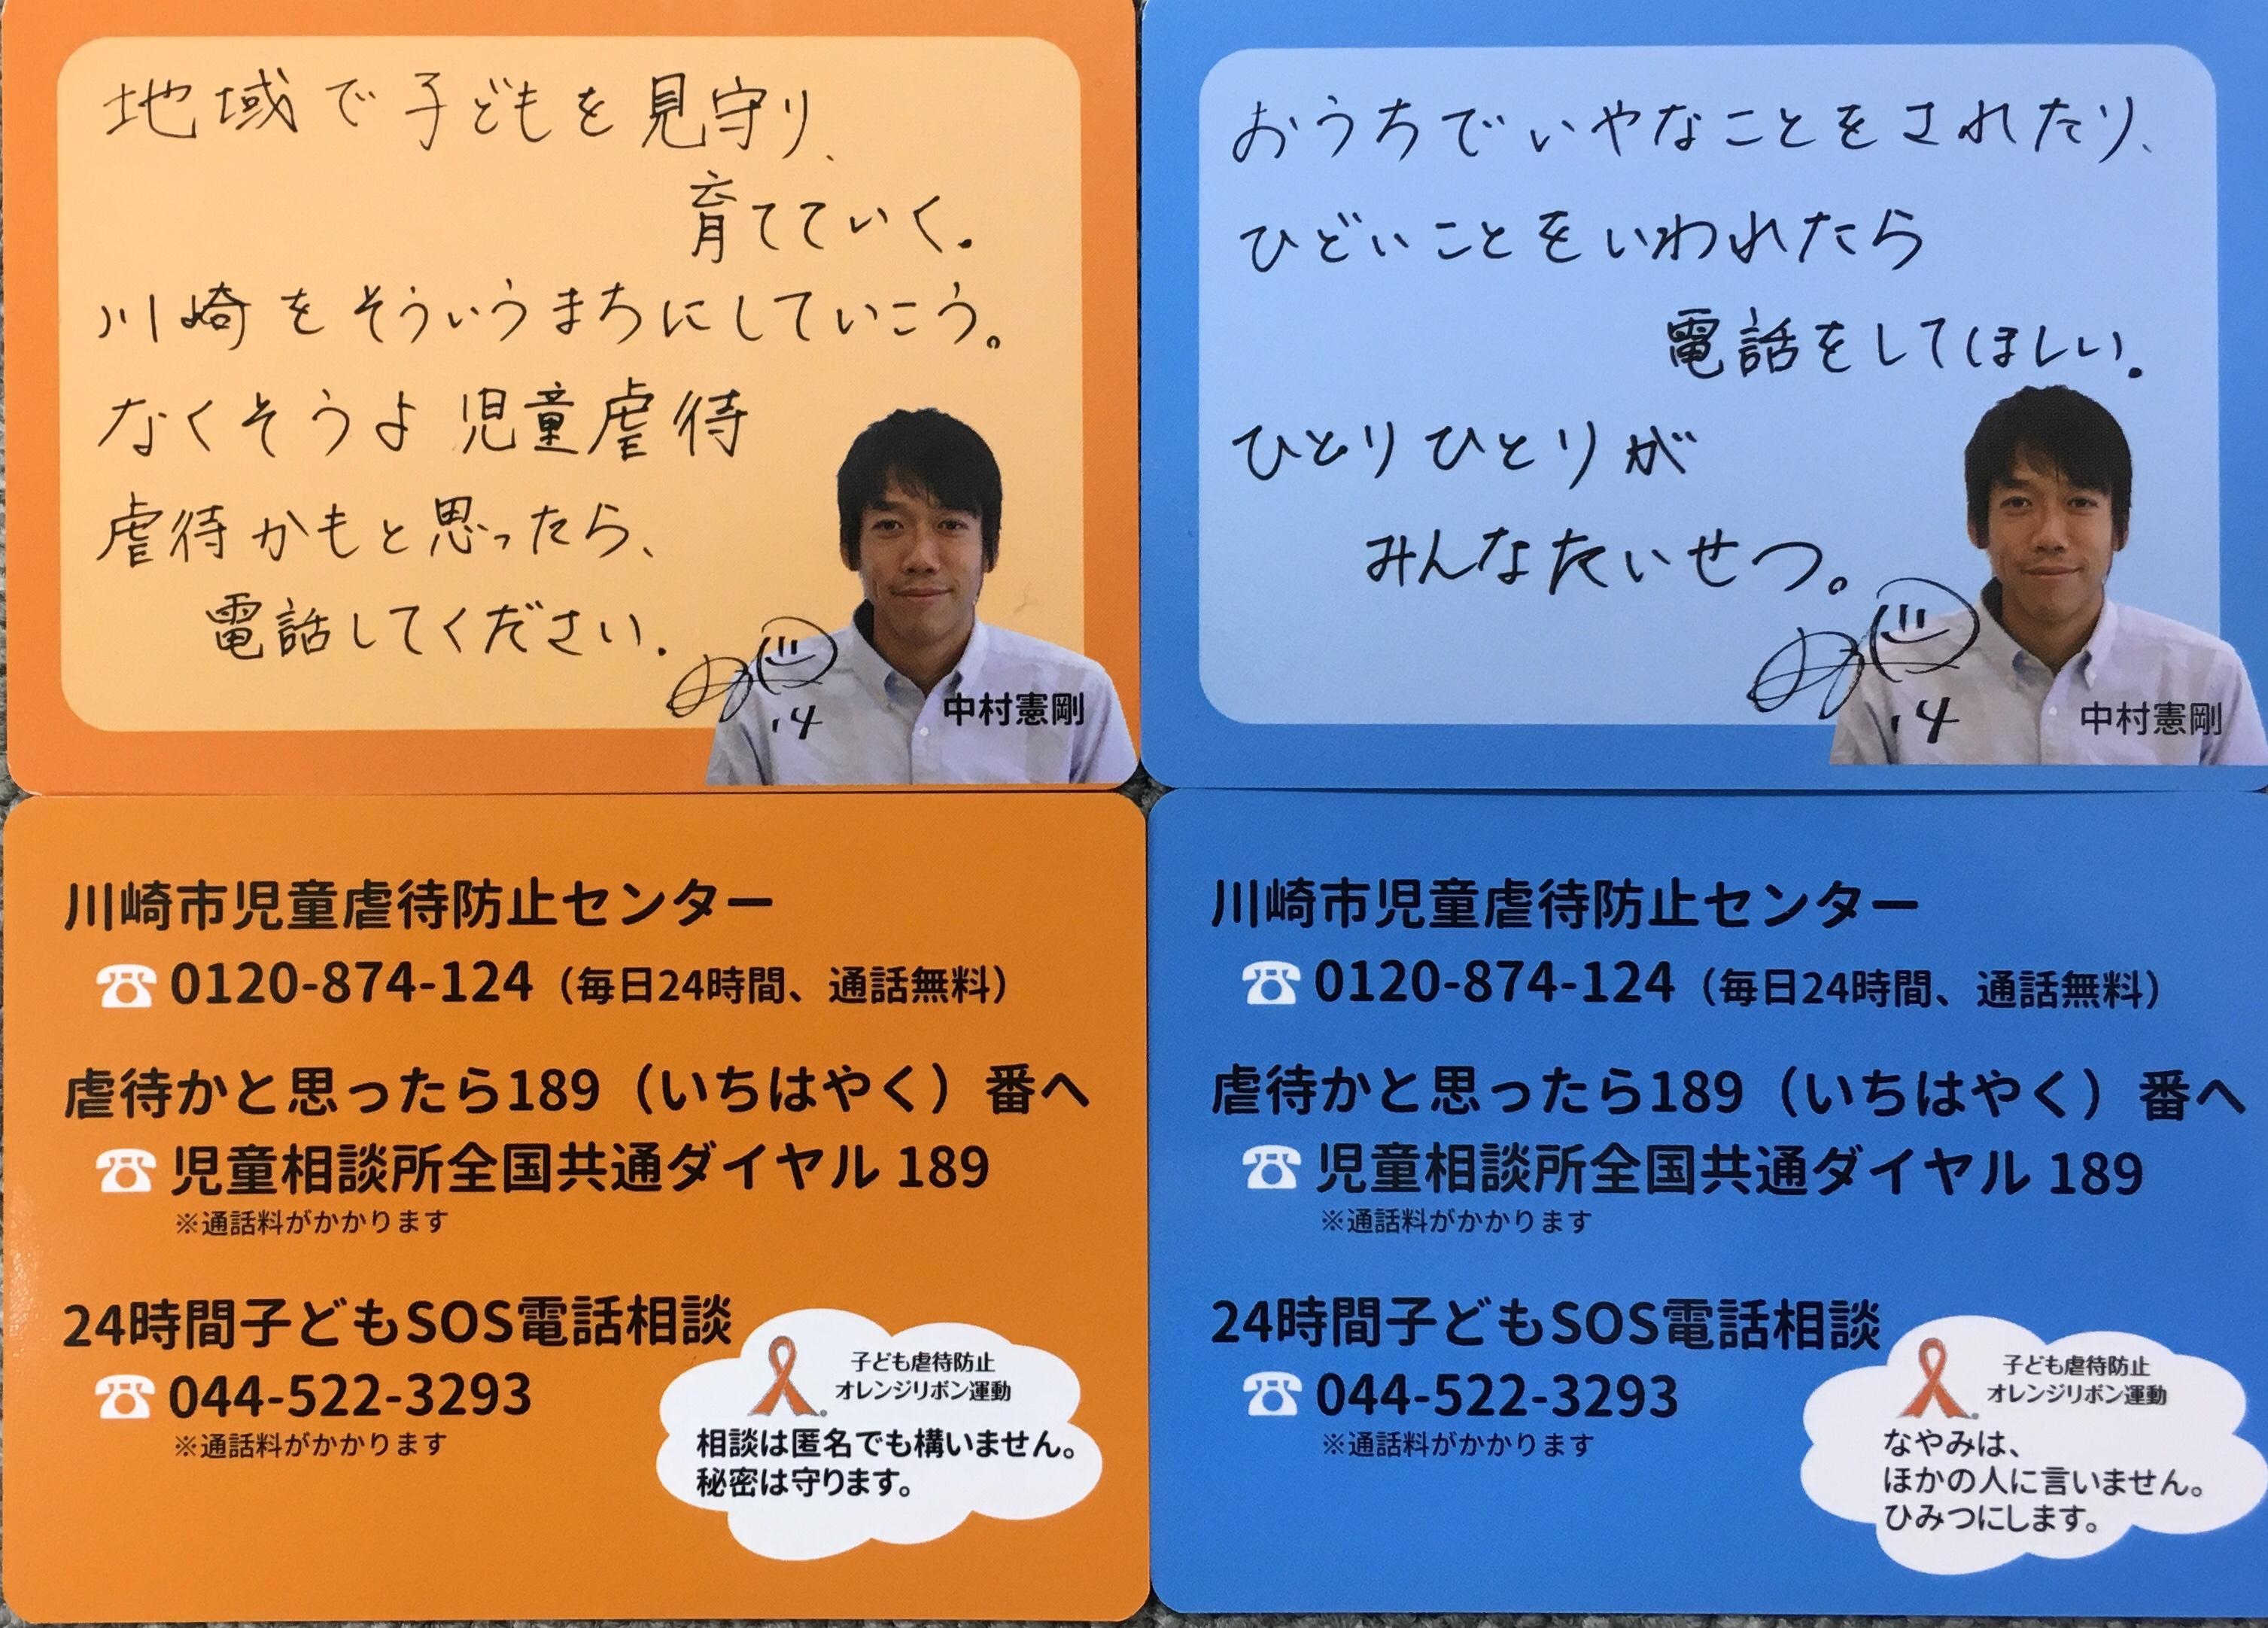 地域で子どもを見守り、
育てていく。
川崎をそういうまちにしていこう。
なくそうよ児童虐待
虐待かもと思ったら、
電話してください。
14
中村憲剛
おうちでいやなことをされたり、
ひどいことをいわれたら
電話をしてほしい。
ひとりひとりが
みんなたいせつ。
14
中村憲剛
川崎市児童虐待防止センター
0120-874-124（毎日24時間、通話無料）
虐待かと思ったら189（いちはやく）番へ
児童相談所全国共通ダイヤル 189
※通話料がかかります
24時間子どもSOS電話相談
044-522-3293
※通話料がかかります
子ども虐待防止
オレンジリボン運動
相談は匿名でも構いません。
秘密は守ります。
川崎市児童虐待防止センター
0120-874-124（毎日24時間、通話無料）
虐待かと思ったら189（いちはやく）番へ
児童相談所全国共通ダイヤル 189
※通話料がかかります
24時間子どもSOS電話相談
044-522-3293
※通話料がかかります
子ども虐待防止
オレンジリボン運動
なやみは、
ほかの人に言いません。
ひみつにします。